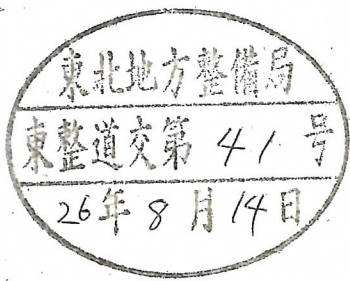 東北地方整備局
東整道交第 41 号
26年8月14日